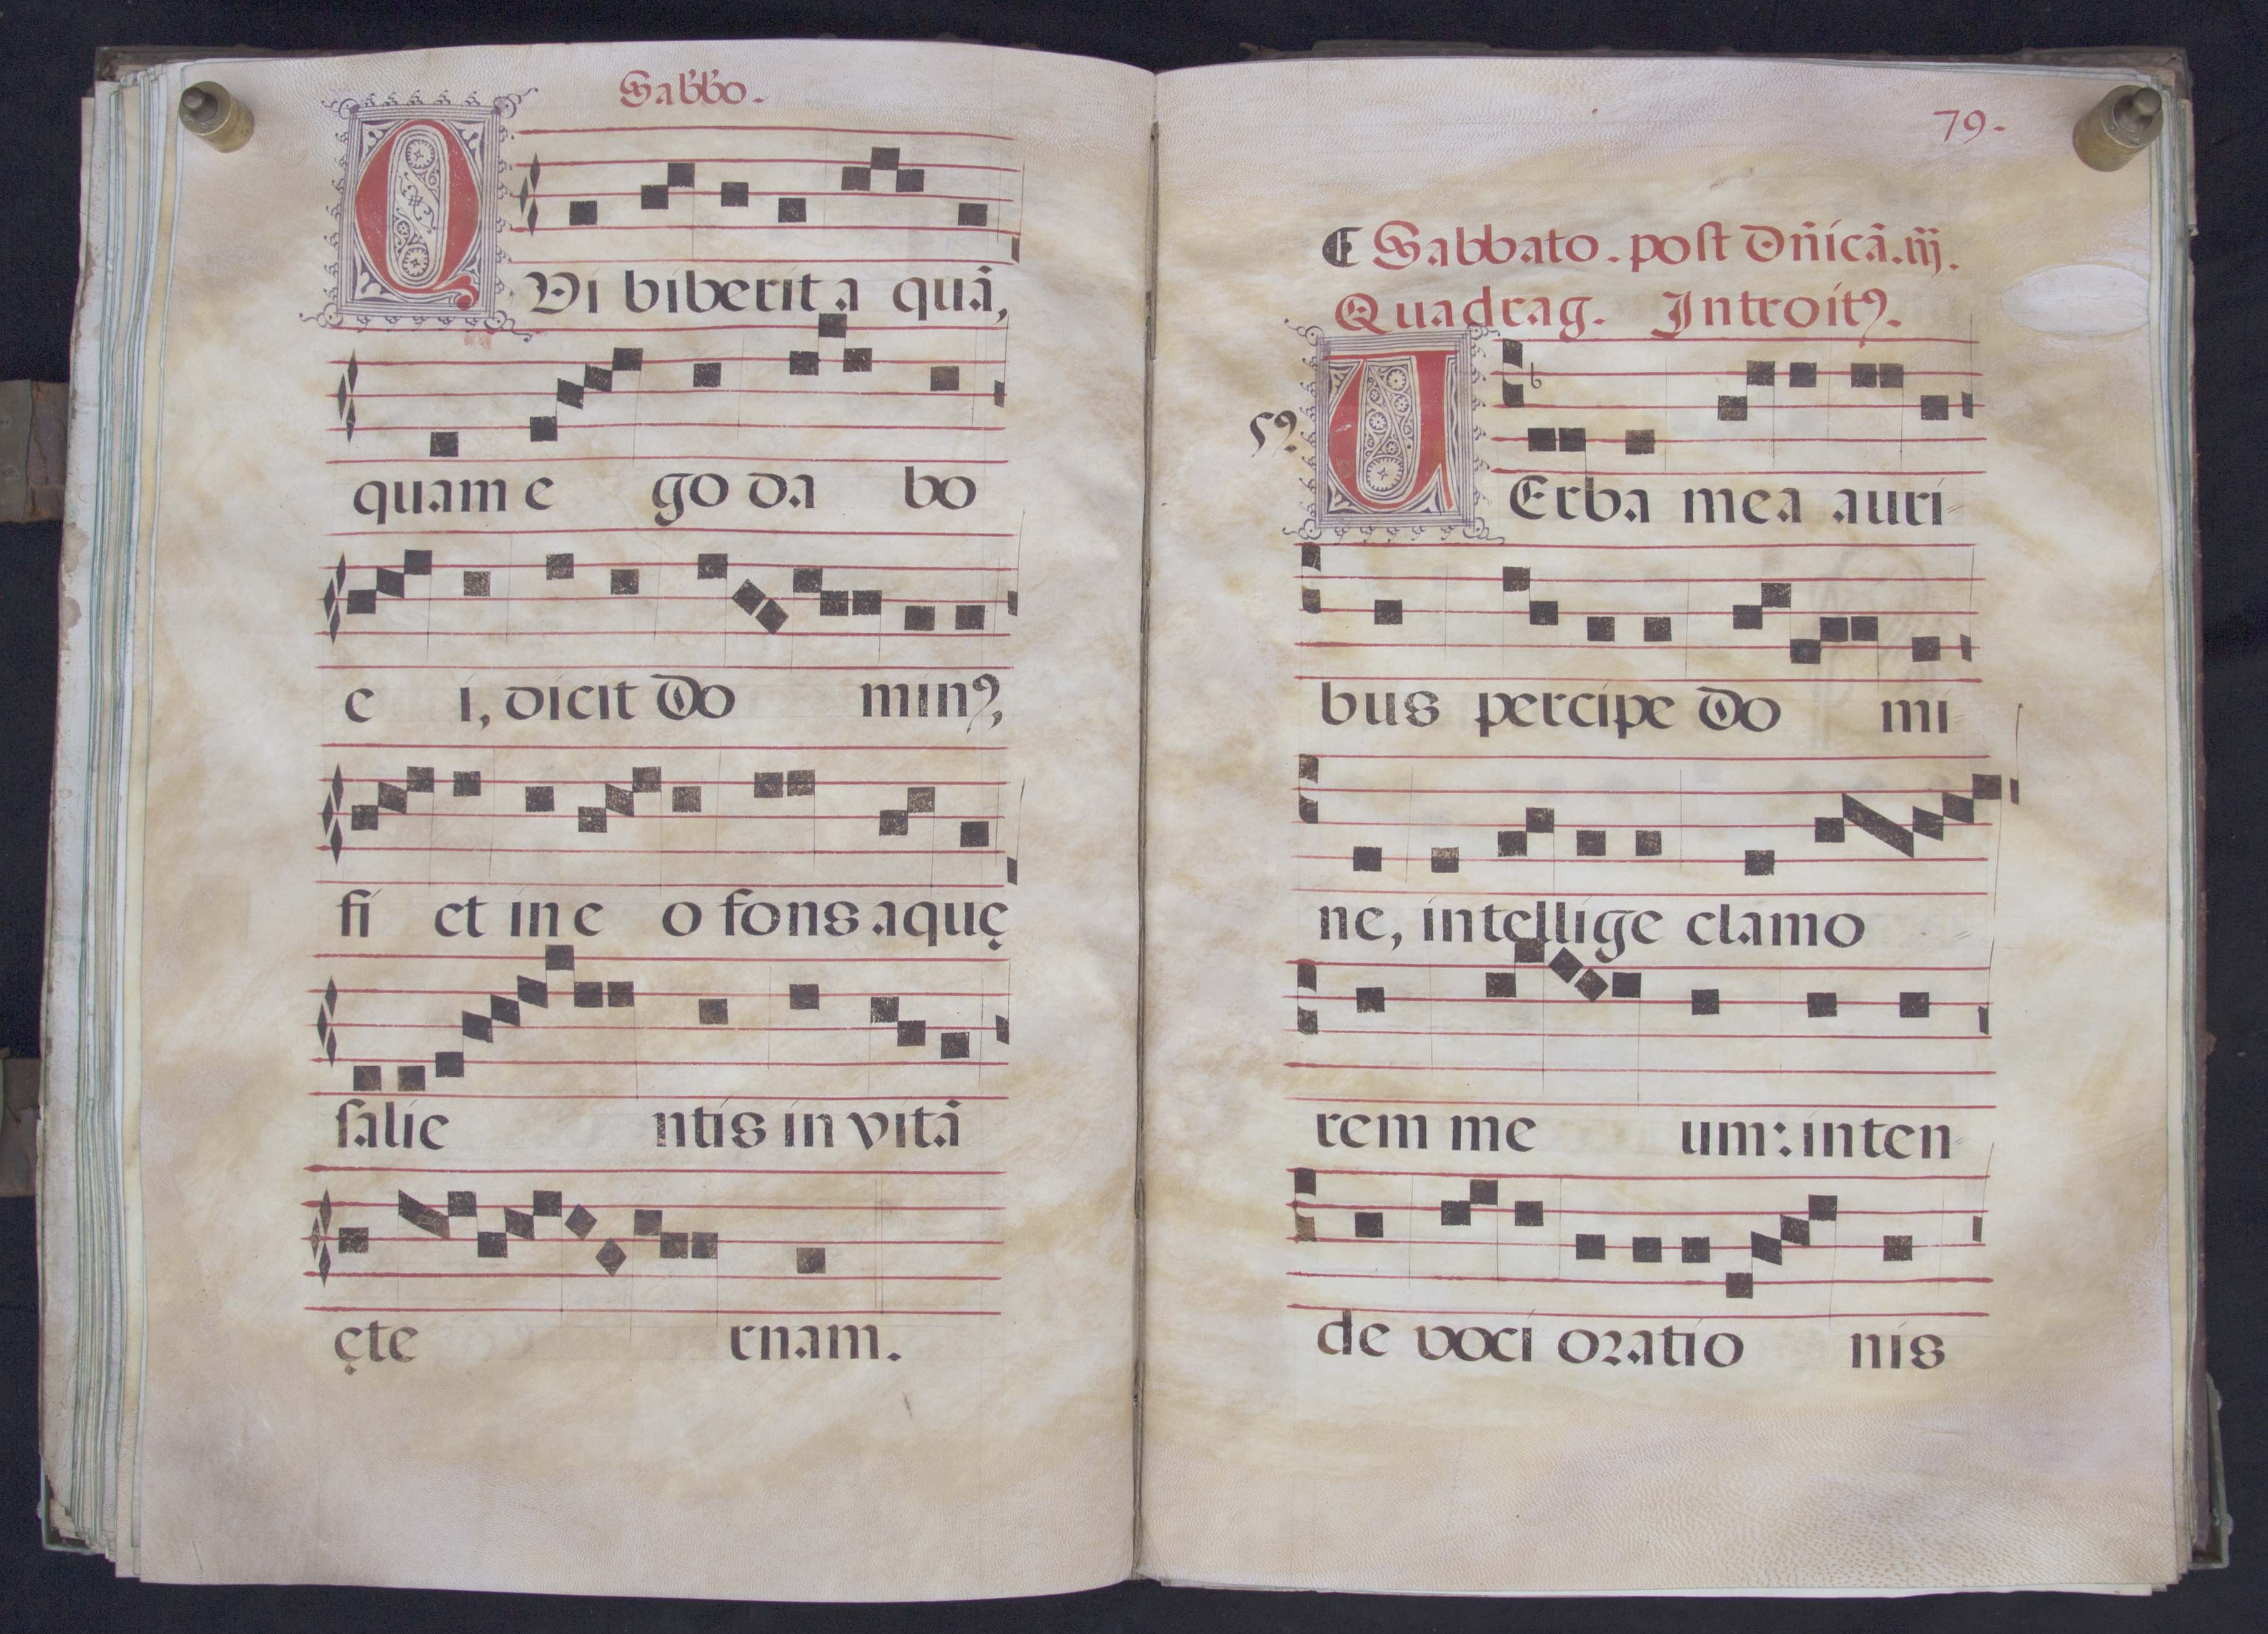 Sabbo.
QVi biberit aquā,
quam ego dabo
ei, dicit Domin⁹,
fiet in eo fons aquę
salientis in vitā
ęternam.
79.
Sabbato. post Dñicā. iij.
Quadrag. Introit⁹.
VErba mea auri
bus percipe Domi
ne, intellige clamo
rem meum: inten
de voci orationis